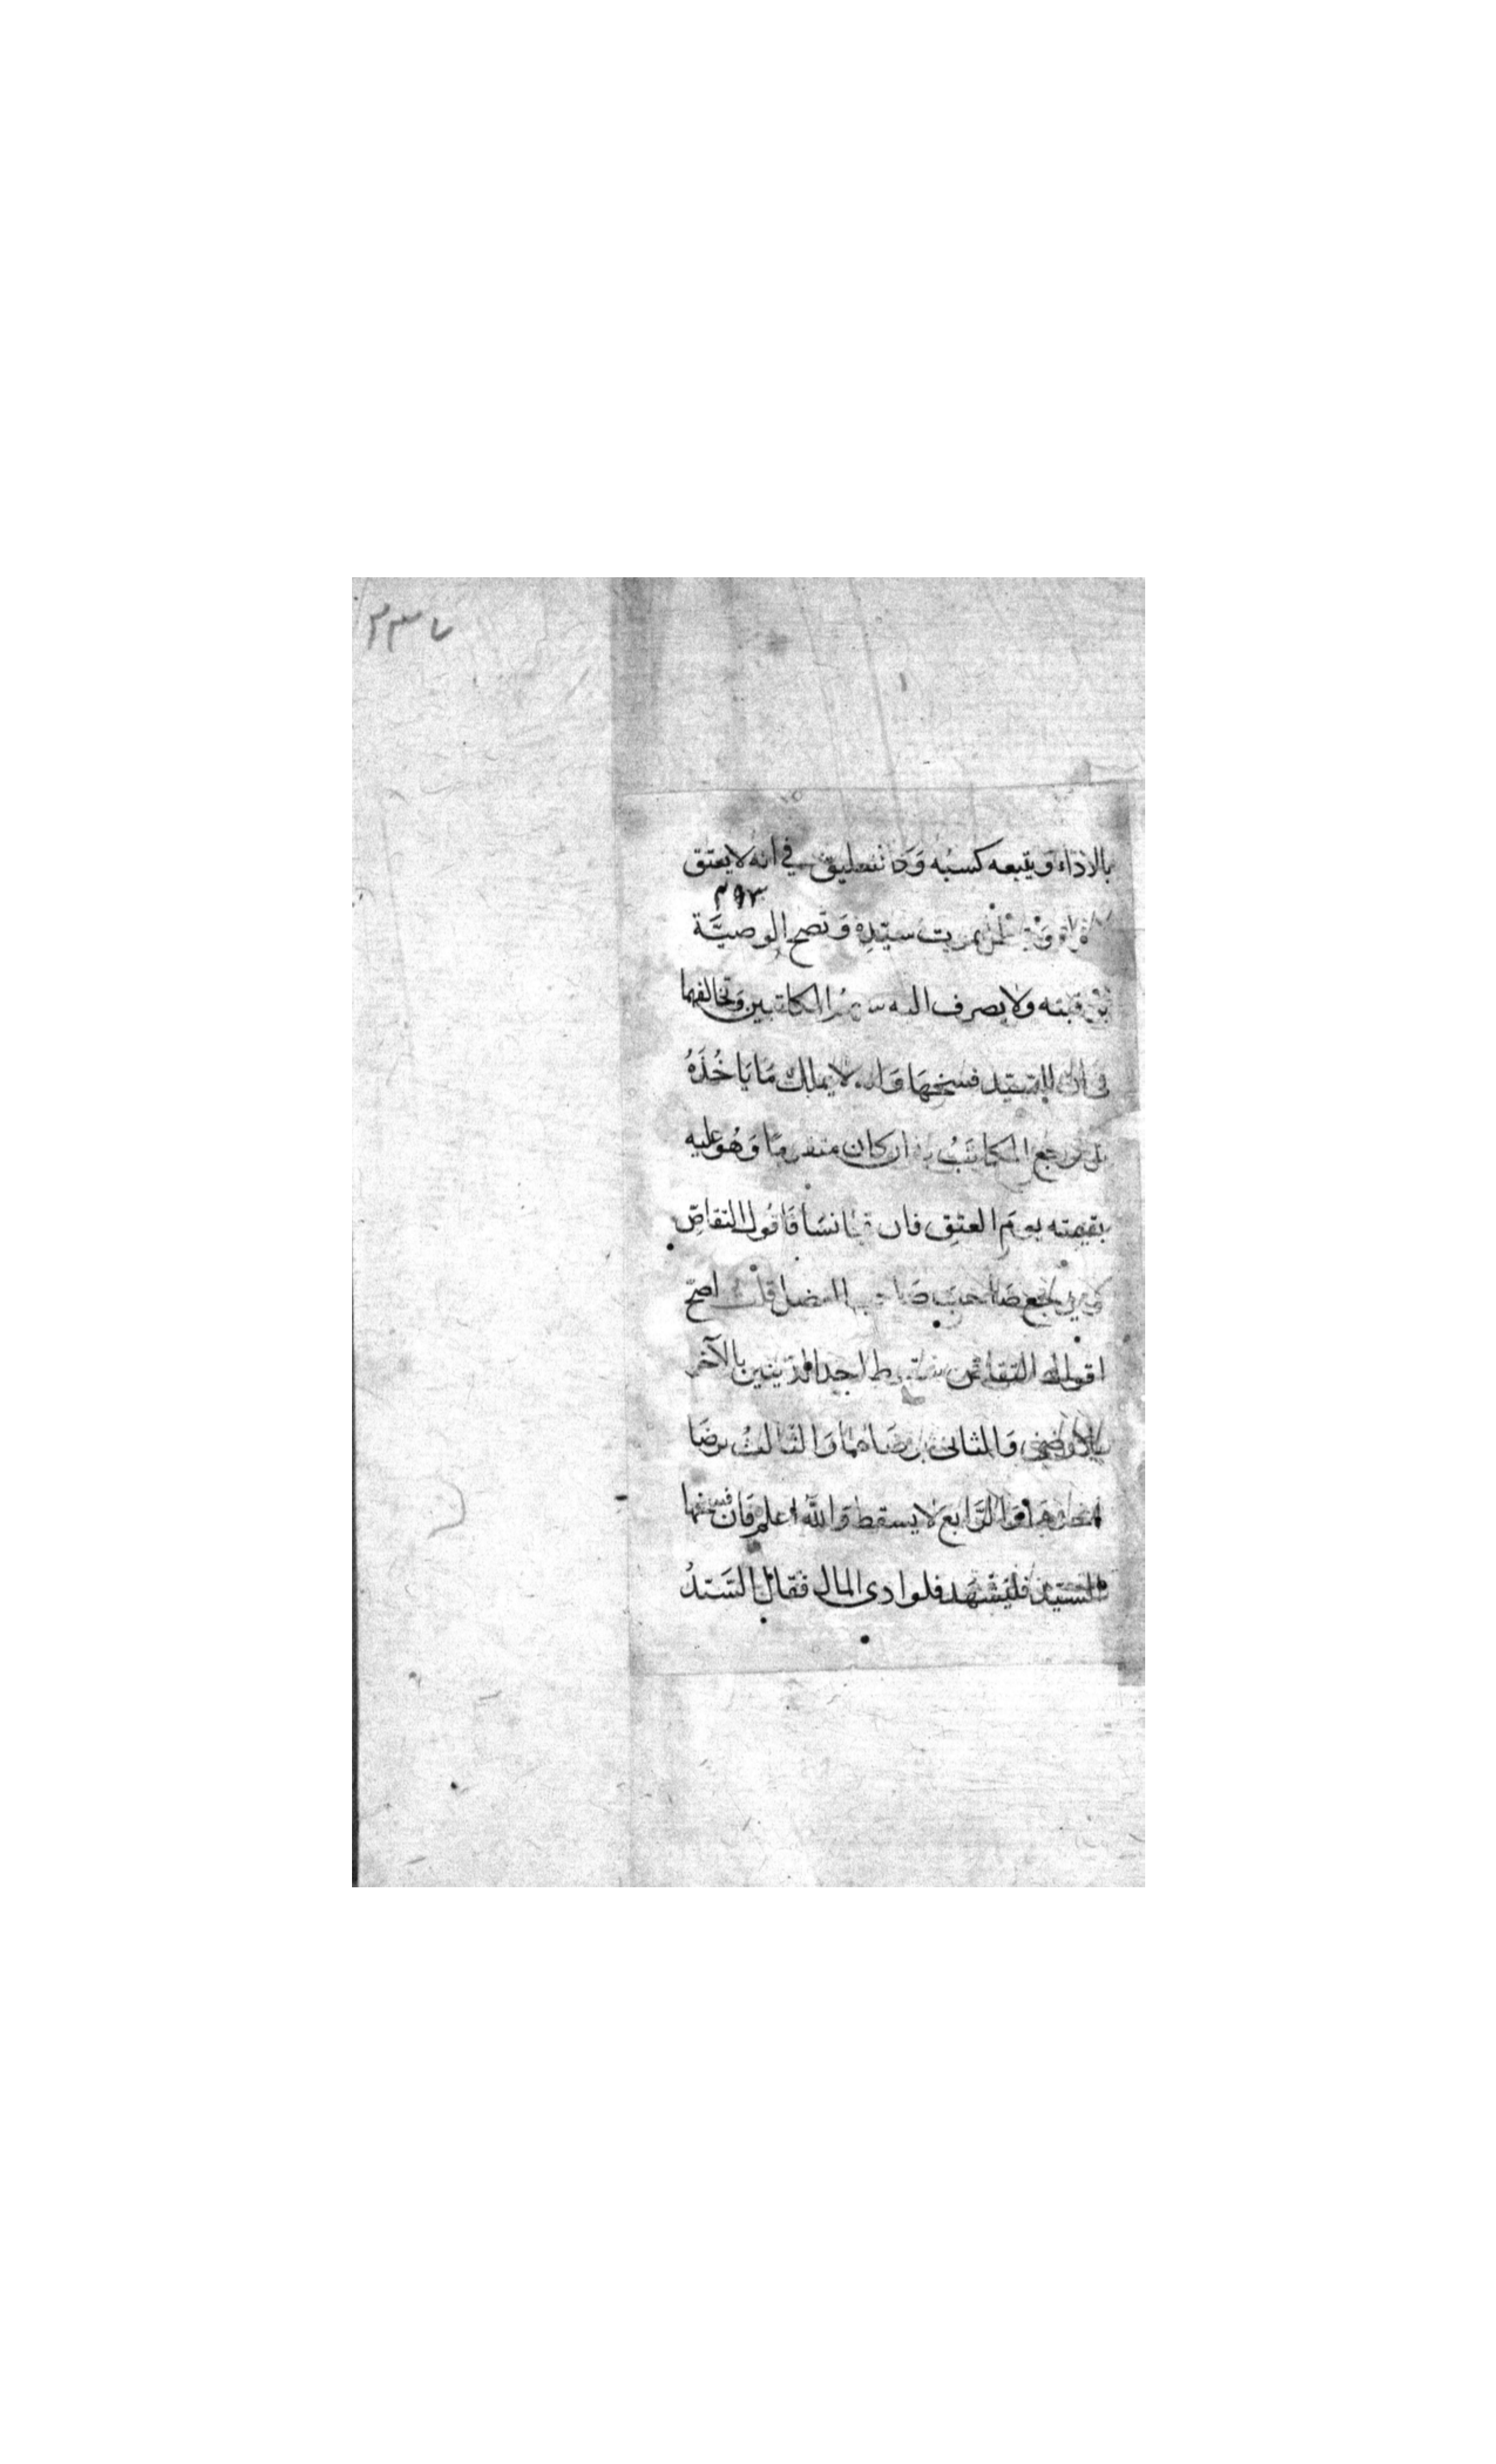 ٢٣٧
بالاداء ويتبعه كسبه وكالتعليق في انه لا يعتق
٣٩٣
بموت سيّده وتصح الوصيّة
برقبته ولا يصرف اليه سهم المكاتبين وتخالفهما
في ان للسّيّد فسخها وانه لا يملك مَا يَاخُذُهُ
بل يرجع المكاتَبُ به ان كان متقومًا وَهُو عليه
بقيمته يومَ العتق فان تجانسَا فَاقوال التقاصّ
ويرجع صَاحبُ الفضل قلت اصحّ
اقوال التقاص سقوط احد الدّينين بالآخر
بلا رضى وَالثاني برضَاهما وَالثالث برضَا
احدهما وَالرّابع لا يسقط وَاللّه اعلم فَان فسخها
السّيّد فليُشْهد فلو ادى المال فقال السّيّدُ